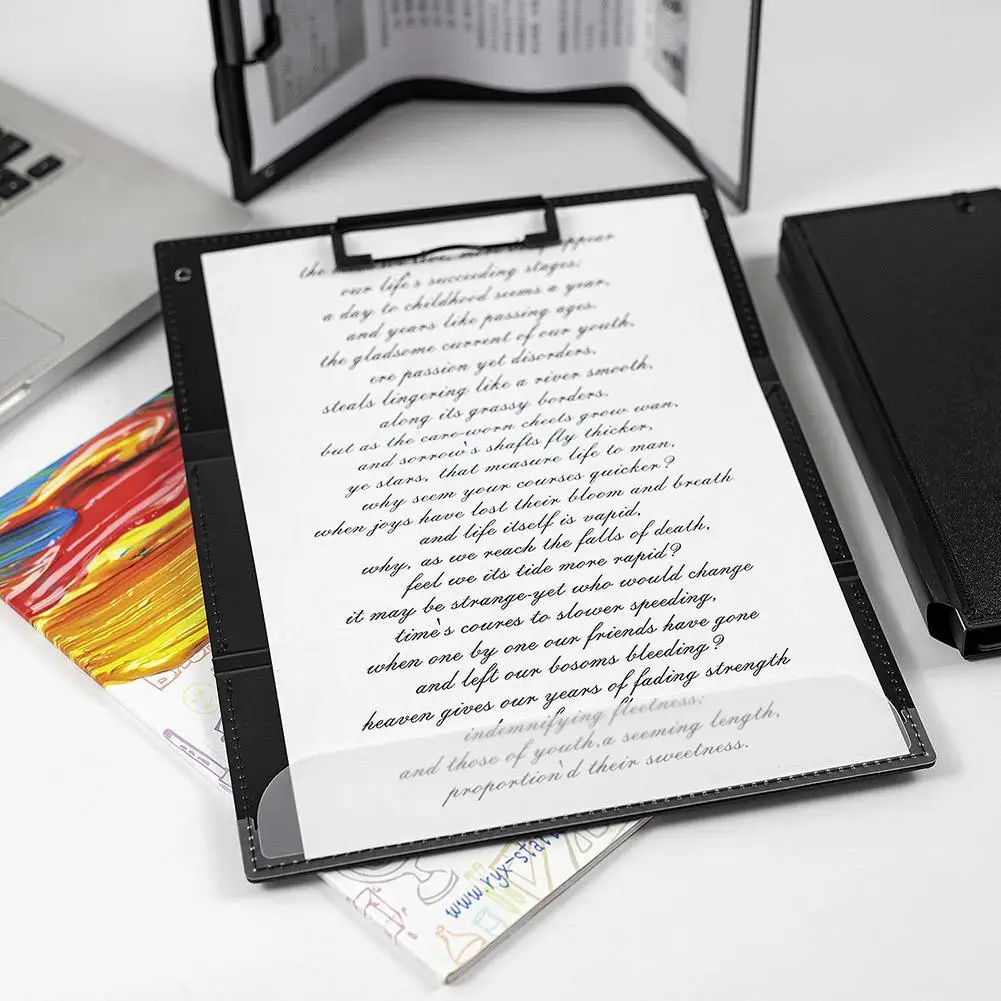 the live, more appear
our life's succeeding stages;
a day to childhood seems a year,
and years like passing ages.
the gladsome current of our youth,
ere passion yet disorders,
steals lingering like a river smooth,
along its grassy borders.
but as the care-worn cheets grow wan,
and sorrow's shafts fly thicker,
ye stars, that measure life to man,
why seem your courses quicker?
when joys have lost their bloom and breath
and life itself is vapid,
why, as we reach the falls of death,
feel we its tide more rapid?
it may be strange-yet who would change
time's coures to slower speeding,
when one by one our friends have gone
and left our bosoms bleeding?
heaven gives our years of fading strength
indemnifying fleetness;
and those of youth,a seeming length,
proportion'd their sweetness.
www.ryx-stat